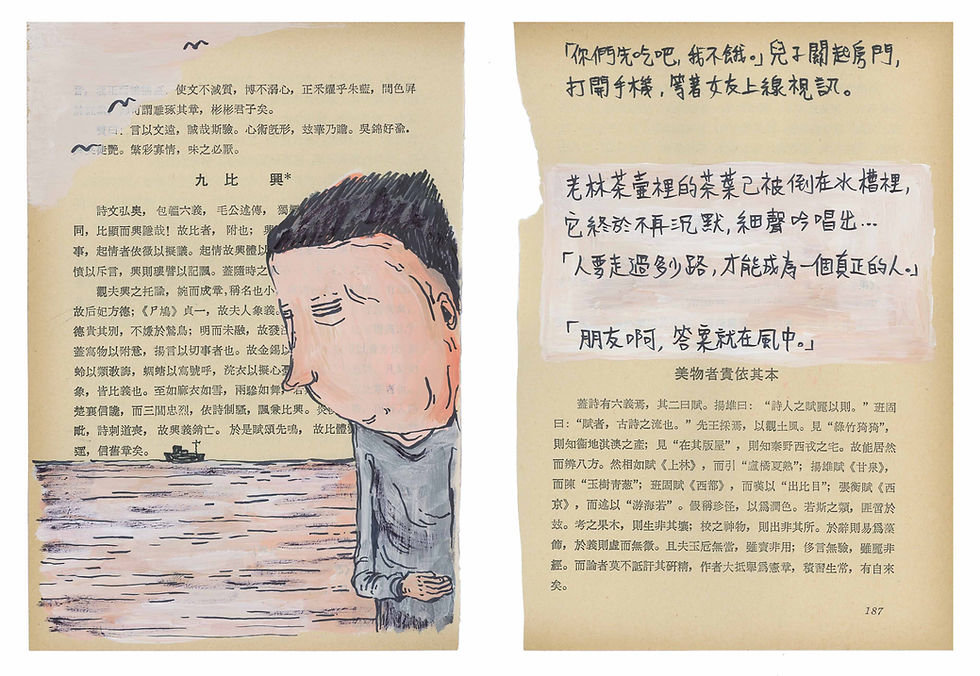 使文不滅質，博不溺心，正釆耀乎朱藍，間色屏
可謂雕琢其章，彬彬君子矣。
贊曰：言以文遠，誠哉斯驗。心術旣形，玆華乃贍。吳錦好渝，
艷。繁彩寡情，味之必厭。
九 比 興*
詩文弘奧，包韞六義，毛公述傳，獨
同，比顯而興隱哉！故比者，附也；興
事，起情者依微以擬議。起情故興體以
憤以斥言，興則環譬以記諷。蓋隨時之
觀夫興之托諭，婉而成章，稱名也小
故后妃方德；《尸鳩》貞一，故夫人象義。
德貴其別，不嫌於鷙鳥；明而未融，故發
蓋寫物以附意，揚言以切事者也。故金錫以
蛉以類敎誨，蜩螗以寫號呼，浣衣以擬心
象，皆比義也。至如麻衣如雪，兩驂如舞，若
楚襄信讒，而三閭忠烈，依詩制騷，諷兼比興。
毗，詩刺道喪，故興義銷亡。於是賦頌先鳴，故比體
信舊章矣。
「你們先吃吧，我不餓。」兒子關起房門，
打開手機，等著女友上線視訊。
老林茶壺裡的茶葉已被倒在水槽裡，
它終於不再沉默，細聲吟唱出…
「人要走過多少路，才能成為一個真正的人。」
「朋友啊，答案就在風中。」
美物者貴依其本
蓋詩有六義焉，其二曰賦。揚雄曰：“詩人之賦麗以則。”班固
曰：“賦者，古詩之流也。”先王採焉，以觀土風。見“綠竹猗猗”，
則知衞地淇澳之產；見“在其版屋”，則知秦野西戎之宅。故能居然
而辨八方。然相如賦《上林》，而引“盧橘夏熟”；揚雄賦《甘泉》，
而陳“玉樹青葱”；班固賦《西都》，而歎以“出比目”；張衡賦《西
京》，而述以“游海若”。假稱珍怪，以爲潤色。若斯之類，匪啻於
玆。考之果木，則生非其壤；校之神物，則出非其所。於辭則易爲藻
飾，於義則虛而無徵。且夫玉卮無當，雖寶非用；侈言無驗，雖麗非
經。而論者莫不詆訐其硏精，作者大抵舉爲憲章，積習生常，有自來
矣。
187